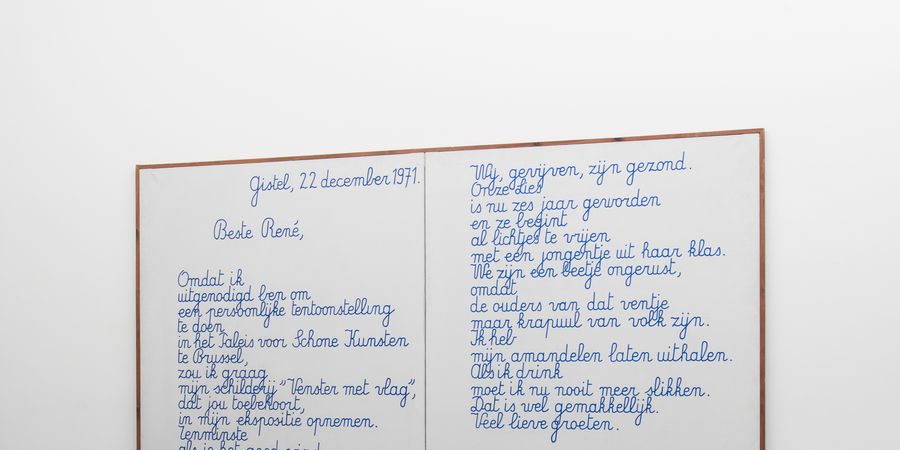 Gistel, 22 december 1971.
Beste René,
Omdat ik
uitgenodigd ben om
een persoonlijke tentoonstelling
te doen
in het Paleis voor Schone Kunsten
te Brussel,
zou ik graag
mijn schilderij "Venster met vlag",
dat jou toebehoort,
in mijn ekspositie opnemen.
Tenminste
als je het goed vind
Wij, gevijven, zijn gezond.
Onze Lies
is nu zes jaar geworden
en ze begint
al lichtjes te vrijen
met een jongentje uit haar klas.
We zijn een beetje ongerust,
omdat
de ouders van dat ventje
maar krapuul van volk zijn.
Ik heb
mijn amandelen laten uithalen.
Als ik drink
moet ik nu nooit meer slikken.
Dat is wel gemakkelijk.
Veel lieve groeten.